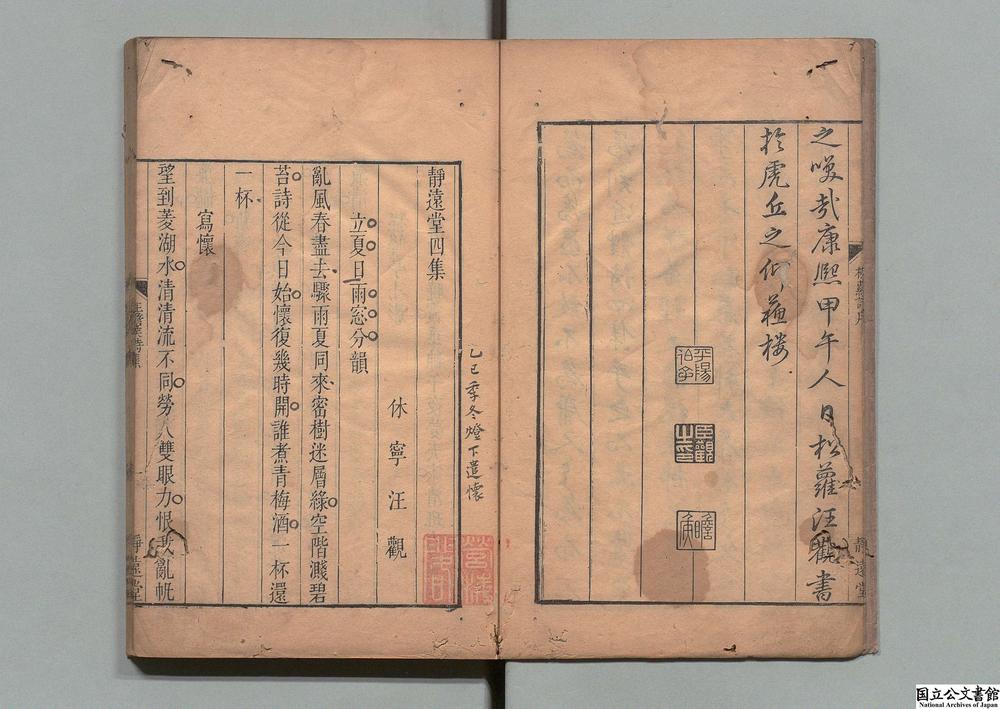 之喚哉康熙甲午人日松蘿汪觀書
於虎丘之仰蘇樓
平陽伯子
臣觀之印
瞻矦
靜遠堂
己巳季冬燈下遣懷
靜遠堂四集
休寧汪觀
立夏日雨窓分韻
亂風春盡去驟雨夏同來密樹迷層綠空階濺碧
苔詩從今日始懷復幾時開誰煮青梅酒一杯還
一杯
寫懷
望到菱湖水清清流不同勞人雙眼力恨我亂帆
靜遠堂
国立公文書館
National Archives of Japan